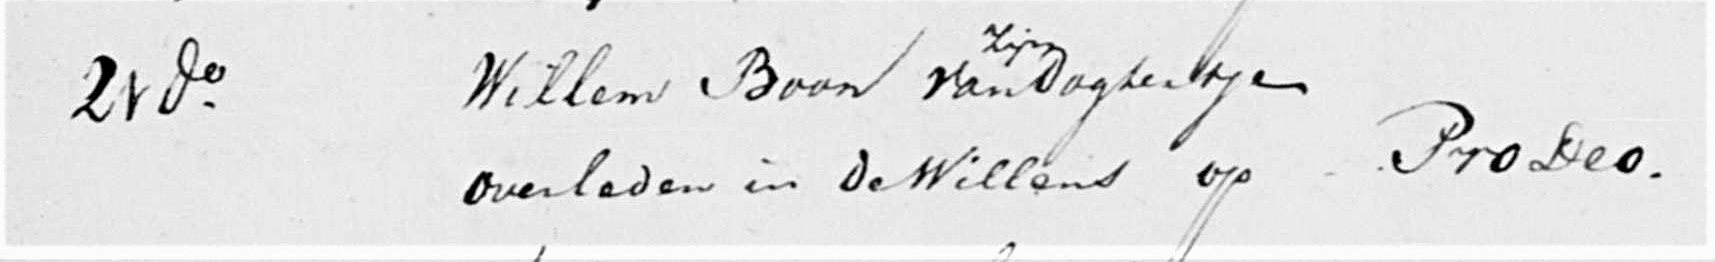 21 do. Willem Boon van zijn Doghertje
overleden in de Willens op Pro Deo.